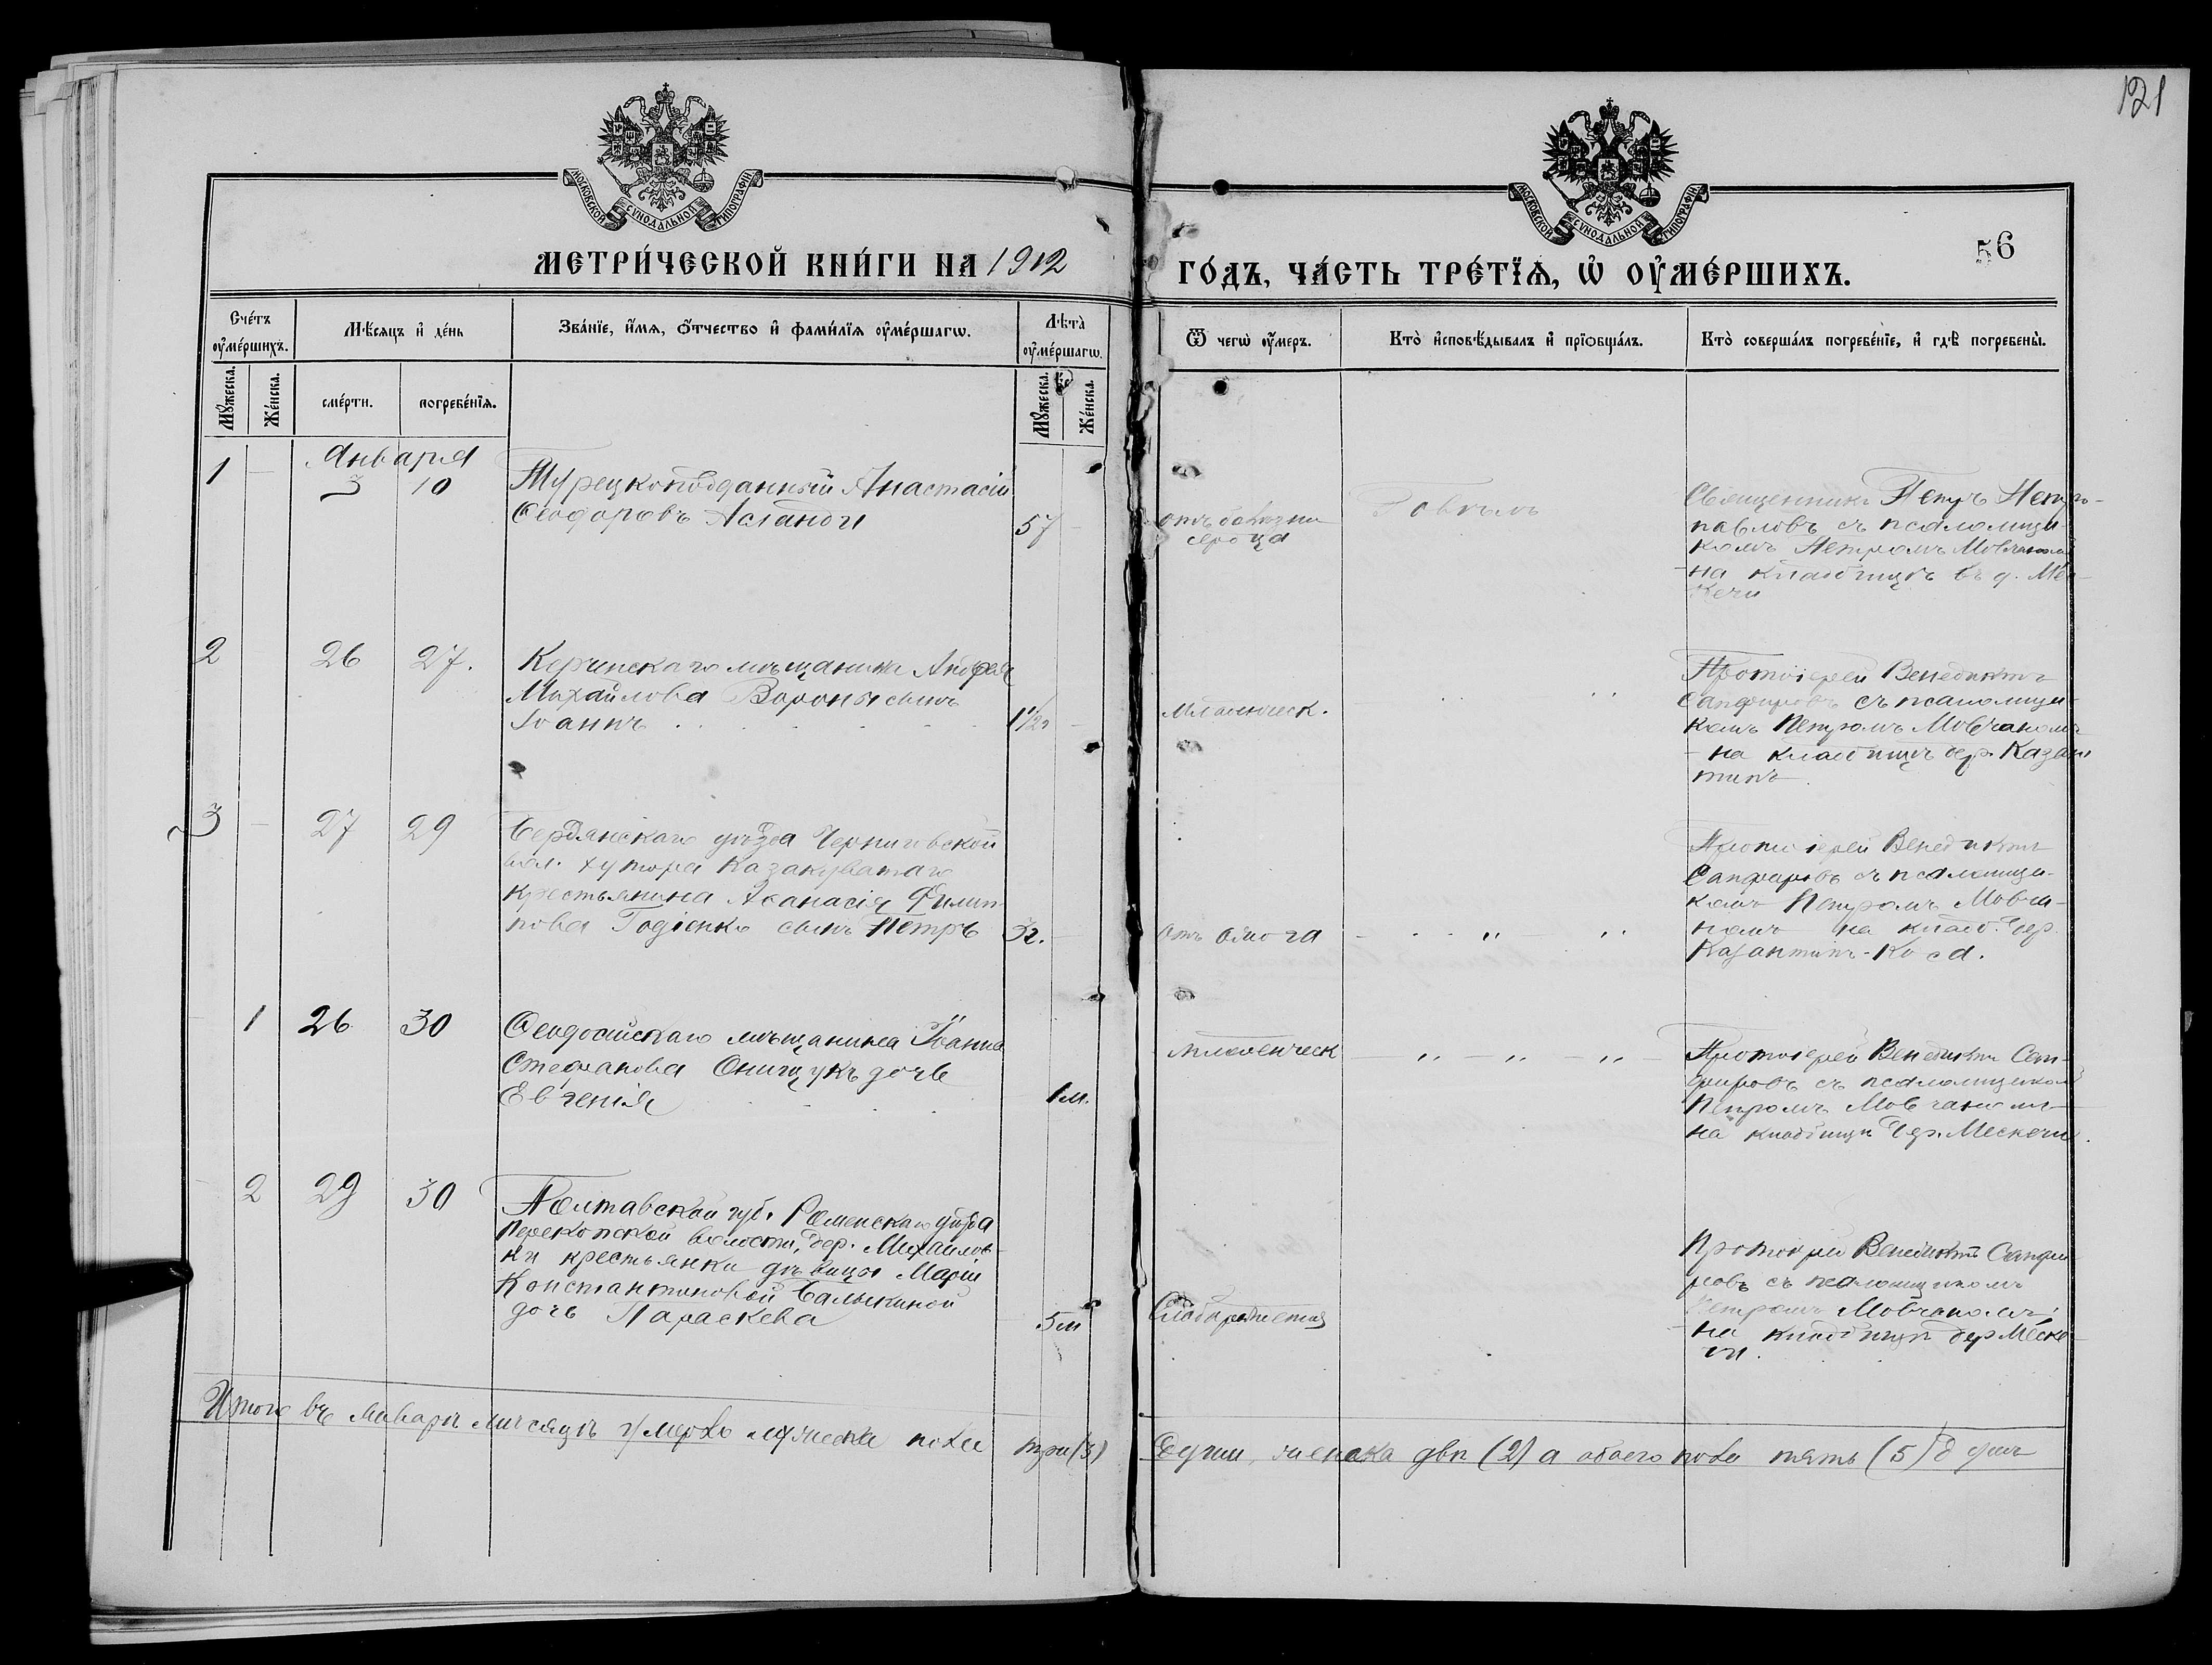 121
МОСКОВСКОЙ СѴНОДАЛЬНОЙ ТИПОГРАФІИ
МОСКОВСКОЙ СѴНОДАЛЬНОЙ ТИПОГРАФІИ
56
МЕТРИ́ЧЕСКОЙ КНИ́ГИ НА 1912
ГО́ДЪ, ЧА́СТЬ ТРЕ́ТЇѦ, Ѡ҆ ОУ҆МЕ́РШИХЪ.
Сче́тъ оу҆ме́ршихъ.
Мѣ́сѧцъ и҆ де́нь
Зва́нїе, и҆́мѧ, ѻ҆́тчество и҆ фами́лїѧ оу҆ме́ршагѡ.
Лѣ́та оу҆ме́ршагѡ.
Ѿ чегѡ̀ оу҆́меръ.
Кто̀ и҆сповѣ́дывалъ и҆ прїѡбща́лъ.
Кто̀ соверша́лъ погребе́нїе, и҆ гдѣ̀ погребены̀.
Мꙋ́жеска.
Же́нска.
сме́рти.
погребе́нїѧ.
Мꙋ́жеска.
Же́нска.
Января
1 — 3 10
Турецкоподданный Анастасій
Ѳеодоровъ Асланди
57
отъ болѣзни
сердца
Священникъ Петръ Петро-
павловъ съ псаломщи-
комъ Петромъ Мовчаномъ
на кладбищѣ въ д. Мес-
кечи
2 26 27.
Керченскаго мѣщанина Андрея
Михайлова Вороны сынъ
Іоаннъ
1 1/2 г
Младенческ.
Протоіерей Венедиктъ
Сапфировъ съ псаломщи-
комъ Петромъ Мовчаномъ
на кладбищѣ дер. Казан
типъ.
3 — 27 29
Бердянскаго уѣзда Черниговской
вол. хутора Казакуватаго
крестьянина Аѳанасія Филип-
пова Годіенко сынъ Петръ
3г.
Отъ ожога
Протоіерей Венедиктъ
Сапфировъ съ псаломщи-
комъ Петромъ Мовча-
номъ на кладб. дер.
Казантипъ-Коса.
1 26 30
Ѳеодосійскаго мѣщанина Іоанна
Стефанова Онищукъ дочь
Евгенія
1м.
Младенческ
Протоіерей Венедиктъ Сап-
фировъ съ псаломщикомъ
Петромъ Мовчаномъ
на кладбищѣ дер. Мескечи.
2 29 30
Полтавской губ. Роменскаго уѣзда
Перекопской волости, дер. Михайлов-
ки крестьянки дѣвицы Маріи
Константиновой Балыкиной
дочь Параскева
5м
Протоіерей Венедиктъ Сапфи
ровъ съ псаломщикомъ
Петромъ Мовчаномъ,
на кладбищѣ дер Меске
чи.
Итого въ Январѣ мѣсяцѣ умерло мужеска пола три (3)
женска двѣ (2) а обоего пола пять (5) душъ